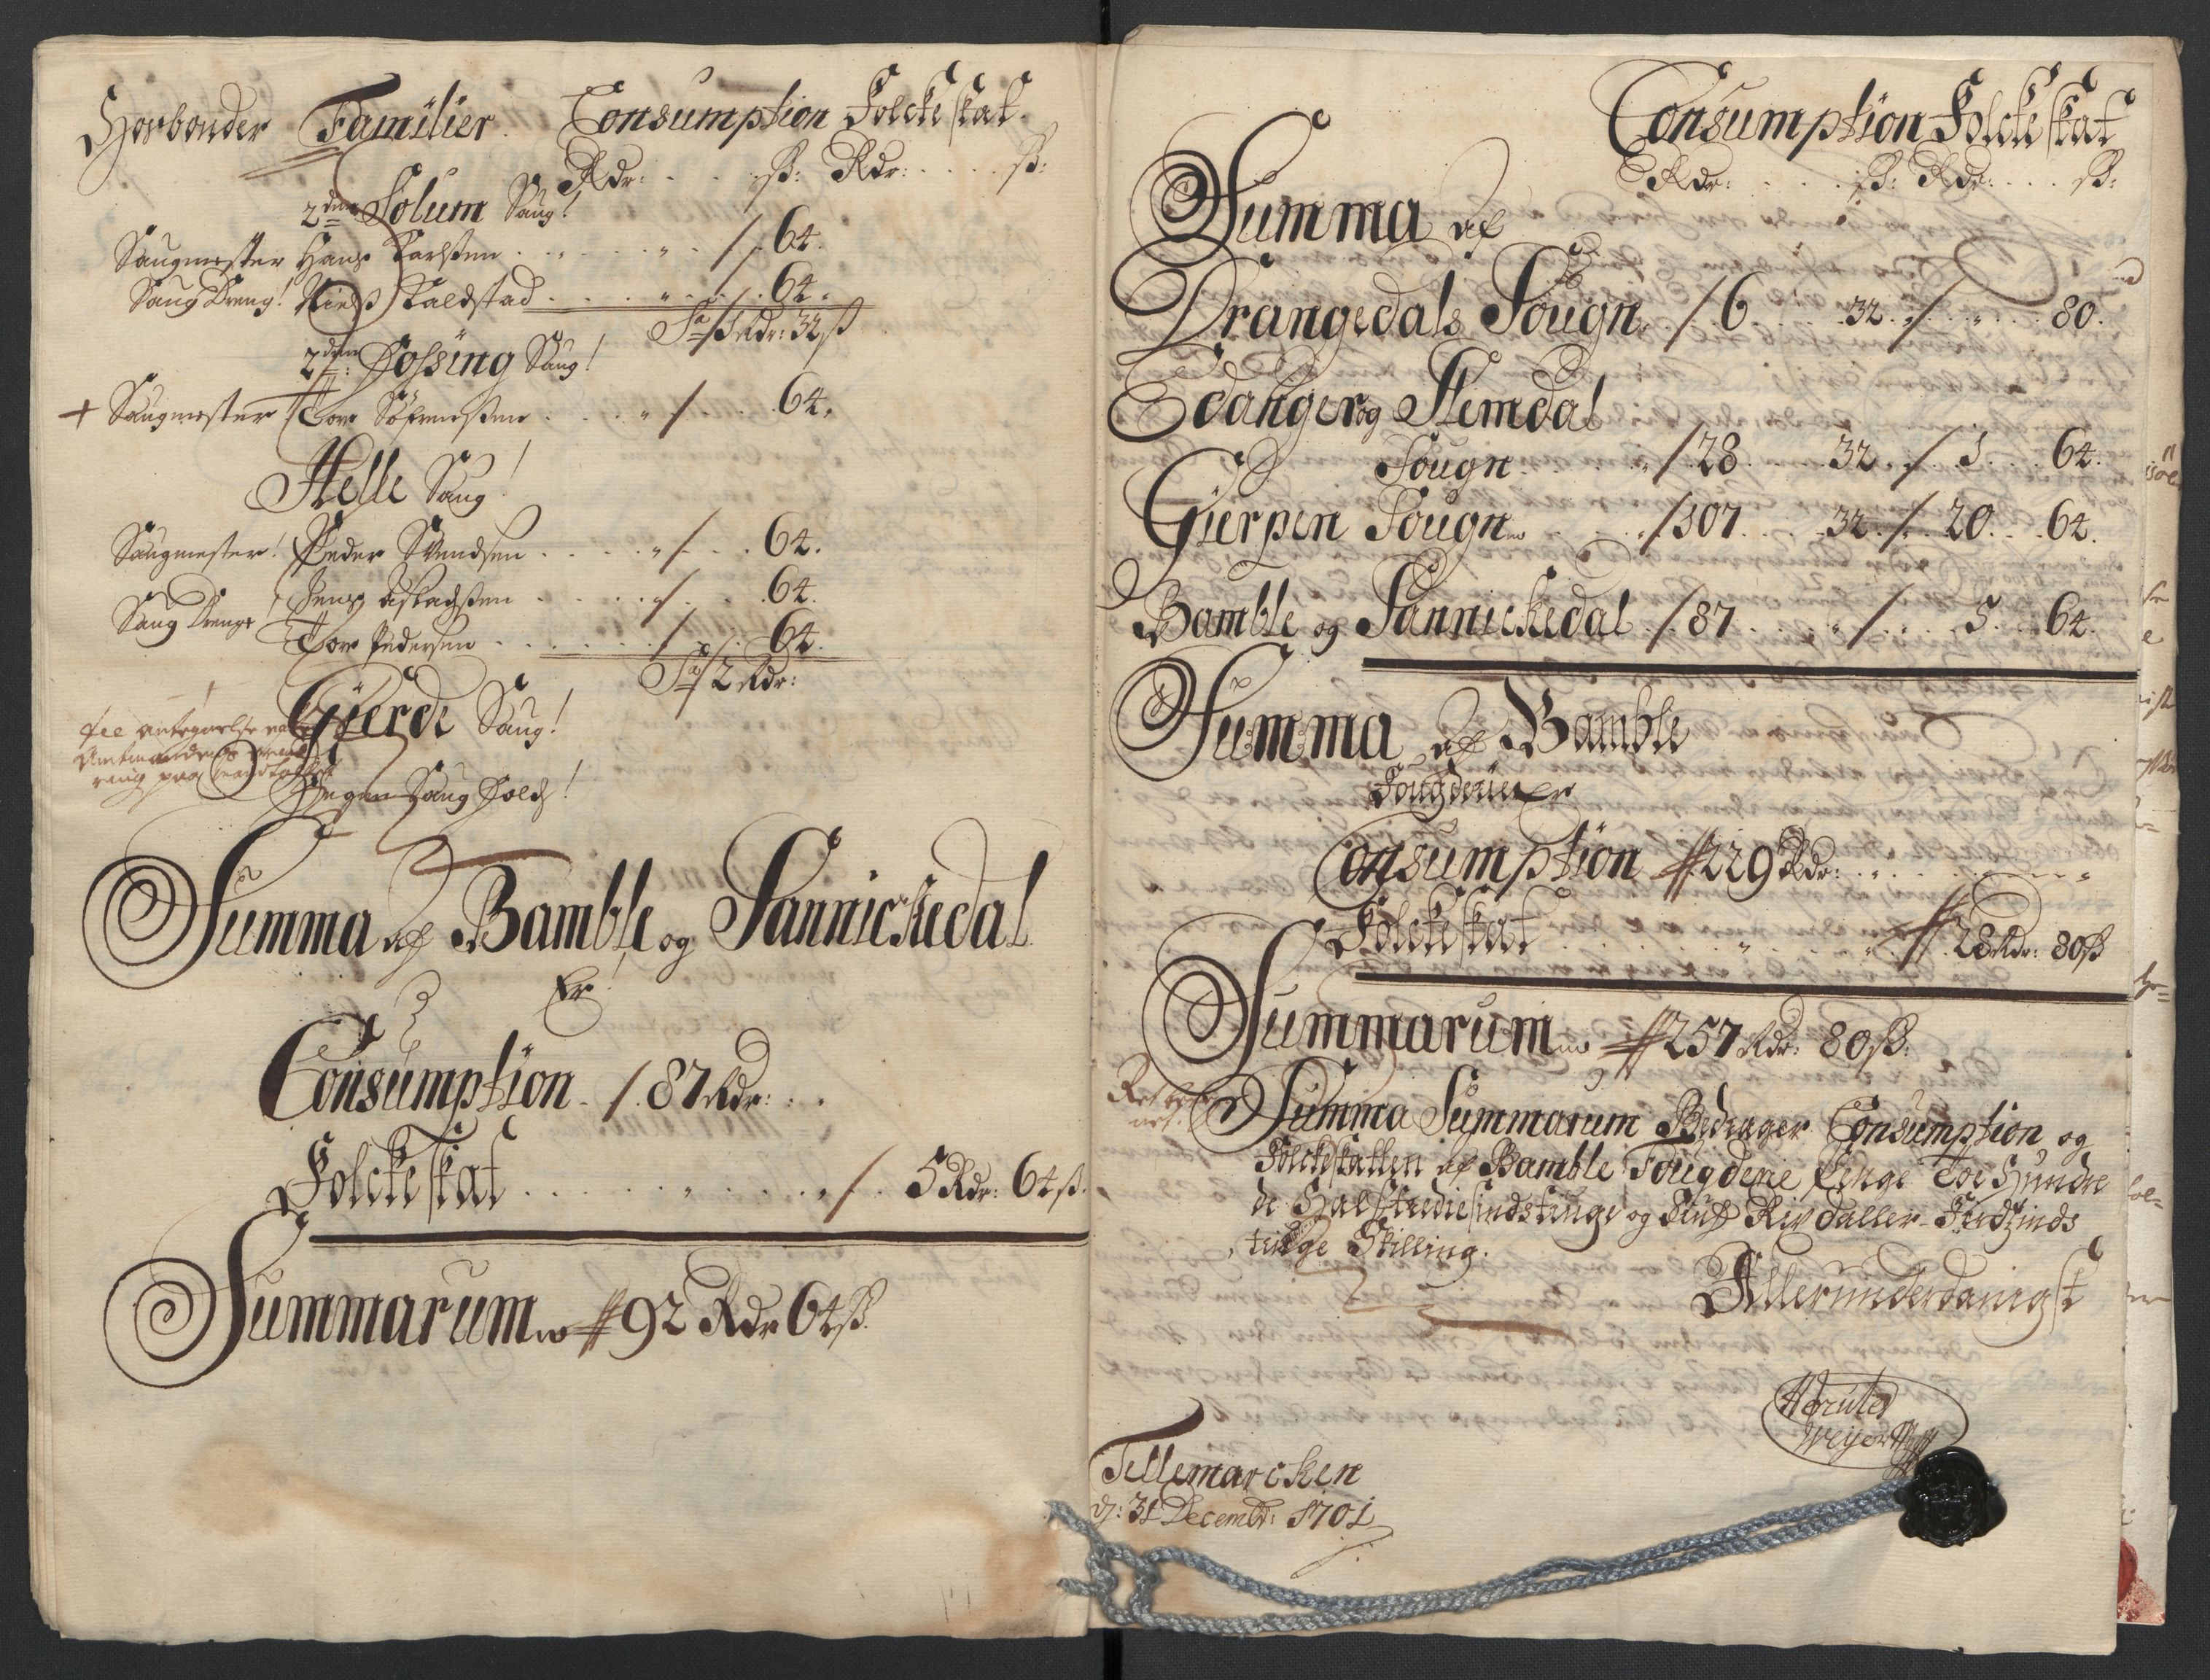 Familier. Consumption Folcke skat.
Rdr: ß: Rdr: ß:
2den Solum Saug!
Saugmester Hans Carlsten 64.
Saug Dreng! Niels Kaldstad 64.
Sa 1 Rdr: 32 ß
2den: Fossing Saug!
+ Saugmester Tore Sörensen 64.
Helle Saug!
Saugmester! Peder Svendsen 64.
Jens Aslachsen 64.
Saug Drenge!
Tore Pedersen 64.
Sa 2 Rdr:
Gierde Saug!
Ingen Saug Folch!
Summa af Bamble og Sannickedal
Er!
Consumption 87 Rdr:
Folckeskat 5 Rdr: 64 ß.
Summarum 92 Rdr 64 ß.
Consumption Folckeskat
Rdr: ß: Rdr: ß:
Summa af
Drangedals Sougn 16 32 80.
Edanger og Slemdal
Sougn 28 32. 1 64.
Gierpen Sougn 107 32 20 64.
Bamble og Sannickedal 87 5 64.
Summa af Bamble
Fougderie er
Consumption 229 Rdr:
Folckeskat 28 Rdr: 80 ß
Summarum 257 Rdr: 80 ß.
Summa Summarum Bedrager Consumption og
Folckeskatten af Bamble Fougderie Penge Toe Hundre
de Halftrediesindstiuge og Siuf Rix daller Firdsinds
tiuge Skilling.
Allerunderdanigst
Tellemarcken
d: 31 Decembr: 1701